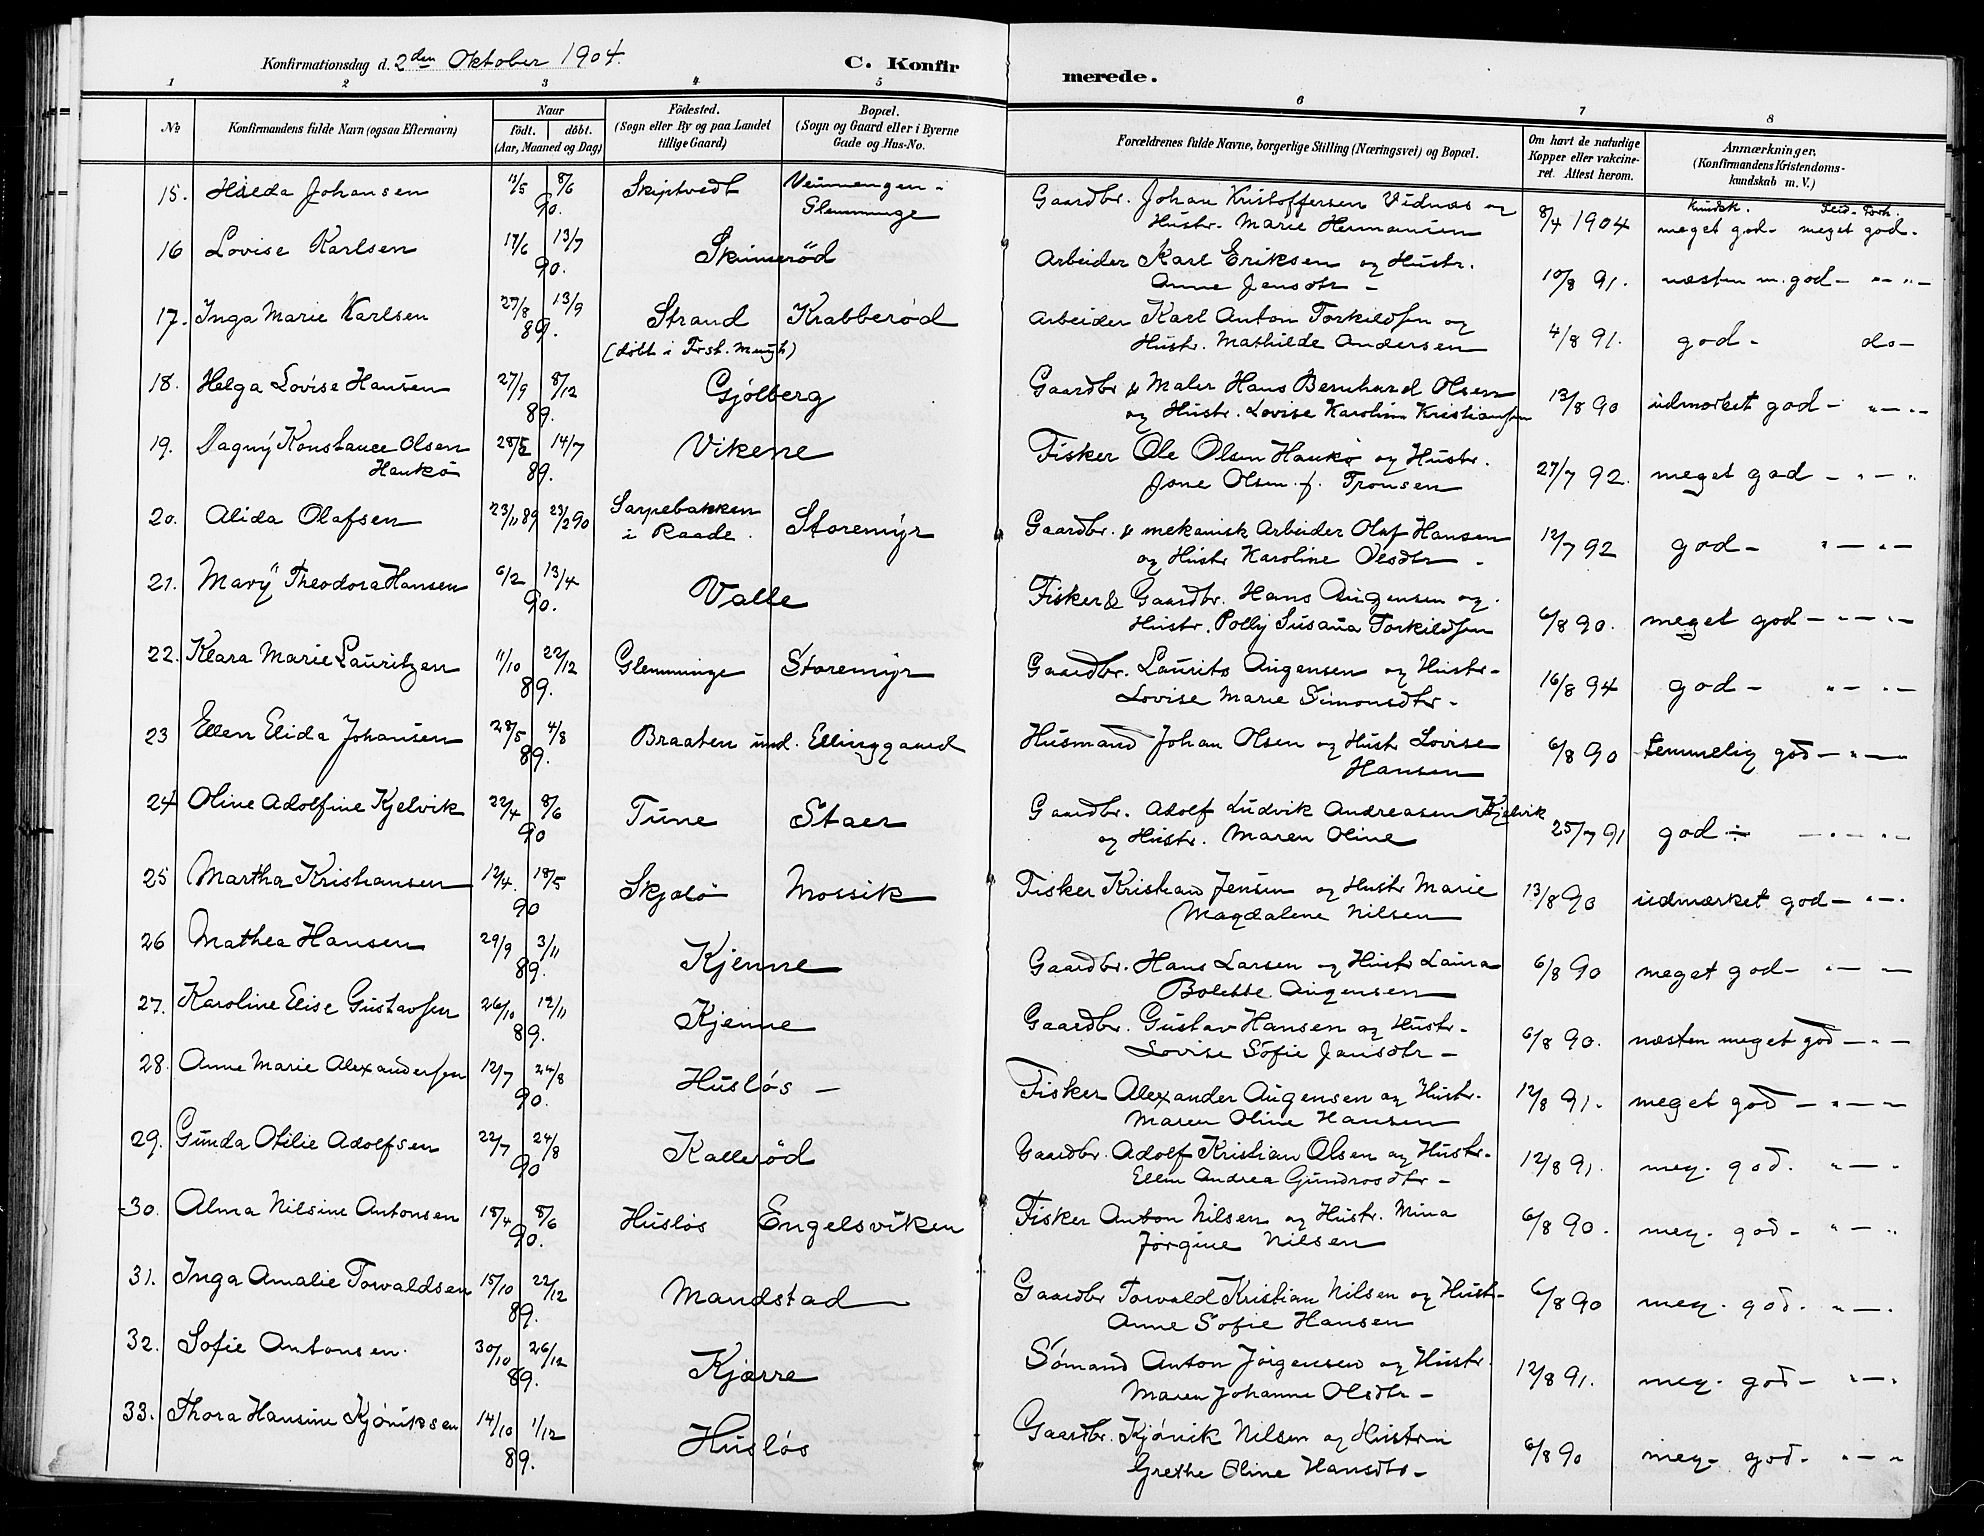 Konfirmationsdag d. 2den Oktober 1904.
C. Konfirmerede.
1 2 3 4 5 6 7 8
No
Konfirmandens fulde Navn (ogsaa Efternavn)
Naar
födt. döbt.
(Aar, Maaned og Dag)
Födested.
(Sogn eller By og paa Landet
tillige Gaard)
Bopæl.
(Sogn og Gaard eller i Byerne
Gade og Hus-No.
Forældrenes fulde Navne, borgerlige Stilling (Næringsvei) og Bopæl.
Om havt de naturlige
Kopper eller vakcine-
ret. Attest herom.
Anmærkninger,
(Konfirmandens Kristendoms-
kundskab m. V.)
15. Hilda Johansen 13/5 8/6 90. Skiptvedt
Glemminge Gaardbr. Johan Kristoffersen Vidnæs og
Hustr. Marie Hermansen 8/4 1904 meget god - meget god -
16 Lovise Karlsen 17/6 13/7 90. Skinnerød Arbeider Karl Eriksen og Hustr.
Anne Jensdtr - 10/8 91. næsten m. god - " - " -
17. Inga Marie Karlsen 27/8 13/9 89. Strand Krabberød Arbeider Karl Anton Torkildsen og
(døbt i Frst. Mengh) Hustr. Mathilde Andersen 4/8 91. god - do -
18. Helga Lovise Hansen 27/9 8/12 89. Gjølberg Gaardbr & Maler Hans Bernhard Olsen
og Hustr. Lovise Karoline Kristiansen 13/8 90 udmærket god - " - " -
19. Dagny Konstance Olsen
Hankø 28/5 14/7 89. Vikene Fisker Ole Olsen Hankø og Hustr.
Jone Olsen f. Tronsen 27/7 92. meget god - " - "
20. Alida Olafsen 23/11 89 23/2 90 Sarpebakken
i Raade. Storemyr Gaardbr. & mekanisk Arbeider Oluf Hansen
og Hustr Karoline Olsdtr - 12/7 92 god - " - " -
21. Mary Theodora Hansen 6/2 13/4 90. Valle Fisker & Gaardbr. Hans Augensen og
Hustr. Polly Susana Torkildsen 6/8 90. meget god - " - " -
22. Klara Marie Lauritzen 11/10 22/12 89. Glemminge Storemyr Gaardbr. Laurits Augensen og Hustr -
Lovise Marie Simonsdtr - 16/8 94 god - " - " -
23 Ellen Elida Johansen 28/5 4/8 89. Braaten und. Ellinggaard Husmand Johan Olsen og Hustr Lovise
Hansen 6/8 90 temmelig god - " -
24 Oline Adolfine Kjelvik 22/4 8/6 90 Tune Staer Gaardbr. Adolf Ludvik Andreasen Kjelvik
og Hustr. Maren Oline 25/7 91 god ÷ - " - " -
25 Martha Kristiansen 12/4. 18/5 90 Skjælø Mossik Fisker Kristian Jensen og Hustr Marie
Magdalene Nilsen 13/8 90 udmærket god - " - "
26 Mathea Hansen 29/9 3/11 89. Kjenne Gaardbr. Hans Larsen og Hustr Laura
Bolette Augensen 6/8 90 meget god - " - -
27. Karoline Elise Gustavsen 26/10 12/11 89. Kjenne Gaardbr. Gustav Hansen og Hustr -
Lovise Sofie Jansdtr - 6/8 90. næsten meget god - " -
28. Anne Marie Alexandersen 12/7 24/8 90. Husløs - Fisker Alexander Augensen og Hustr.
Maren Oline Hansen 12/8 91. meget god - " - -
29. Gunda Otilie Adolfsen 22/7 24/8 90 Kallerød Gaardbr. Adolf Kristian Olsen og Hustr -
Ellen Andrea Gundrosdtr - 12/8 91. meg. god. " - "
30. Alma Nilsine Antonsen 18/4 8/6 90. Husløs Engelsviken Fisker Anton Nilsen og Hustr. Mina
Jørgine Nilsen 6/8 90. meg. god - " - "
31. Inga Amalie Torvaldsen 15/10 22/12 89. Mandstad Gaardbr Torvald Kristian Nilsen og Hustr -
Anne Sofie Hansen 6/8 90 meg. god. " - "
32. Sofie Antonsen. 30/10 26/12 89. Kjærre Sømand Anton Jørgensen og Hustr.
Maren Johanne Olsdtr - 12/8 91. meg. god - " - "
33. Thora Hansine Kjøniksen 14/10 1/12 89. Husløs Gaardbr. Kjønik Nilsen og Hustru
Grethe Oline Hansdtr - 6/8 90 meg. god - " - "